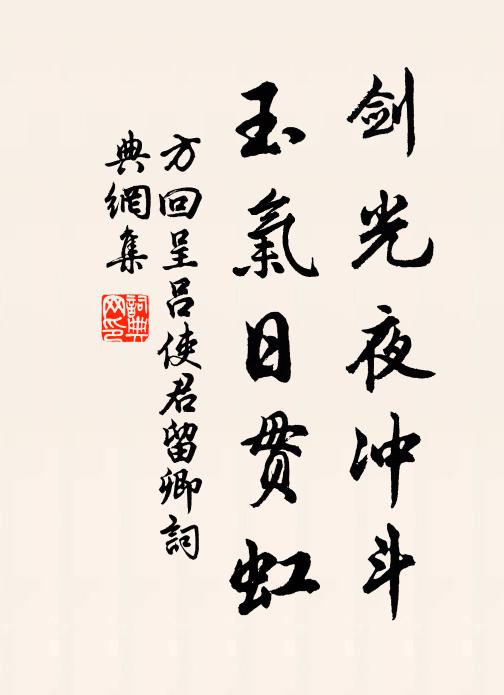 剑光夜冲斗
玉氣日贯虹
方回呈吕使君留卿詞
典網集
詞典
网印